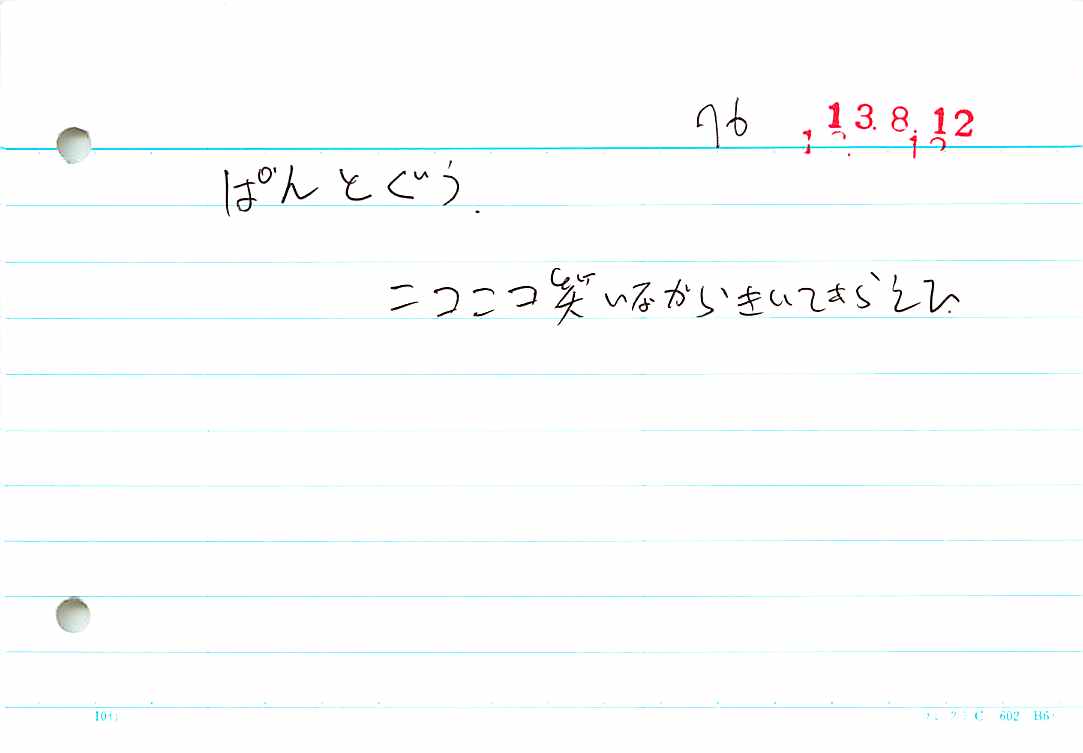 76 13.8.12
ぱんとぐう.
ニコニコ笑いながらきいて
602 B6